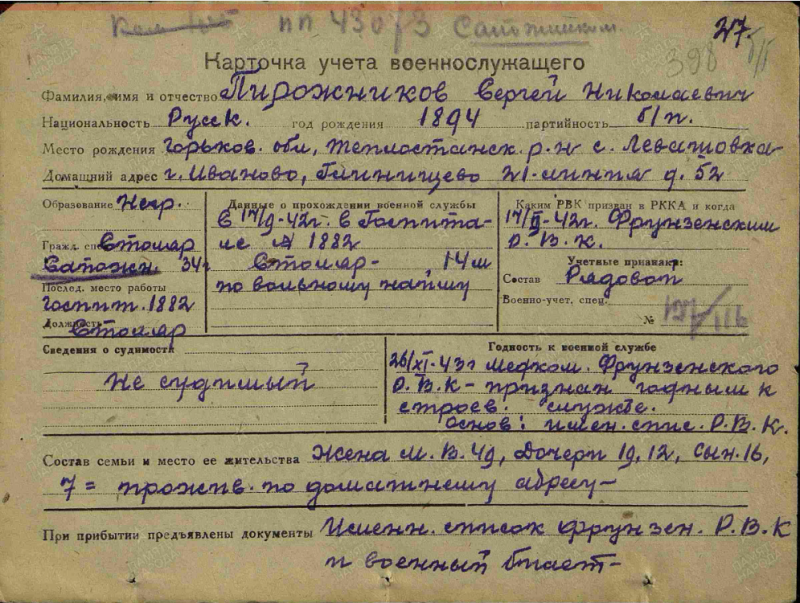 пп 43073 Сапожником.
27.
398
Карточка учета военнослужащего
Фамилия, имя и отчество Пирожников Сергей Николаевич
Национальность Русск. год рождения 1894 партийность б/п.
Место рождения Горьков. обл, Теплостанск. р-н с. Левашовка
Домашний адрес г. Иваново, Глинищево 21-линия д. 52
Образование Негр.
Гражд. спец. Столяр
Сапожн. 34г
Послед. место работы
госпит. 1882
Должность Столяр
Данные о прохождении военной службы
С 17/II-42г. в Госпита-
ле № 1882
Столяр- 14м
по вольному найму
Каким РВК призван в РККА и когда
17/II-42г. Фрунзенским
Р. В. К.
Учетные признаки:
Состав Рядовой
Военно-учет. спец.
№ 117/116
Сведения о судимости
Не судимый
Годность к военной службе
26/XI-43г медком. Фрунзенского
Р. В. К - признан годным к
строев. службе.
Основ: имен. спис. Р. В. К.
Состав семьи и место ее жительства Жена М. В. 49, Дочери 19, 12, Сын. 16,
7 = прожив. по домашнему адресу-
При прибытии предъявлены документы Именн. список Фрунзен. Р. В. К
и военный билет-